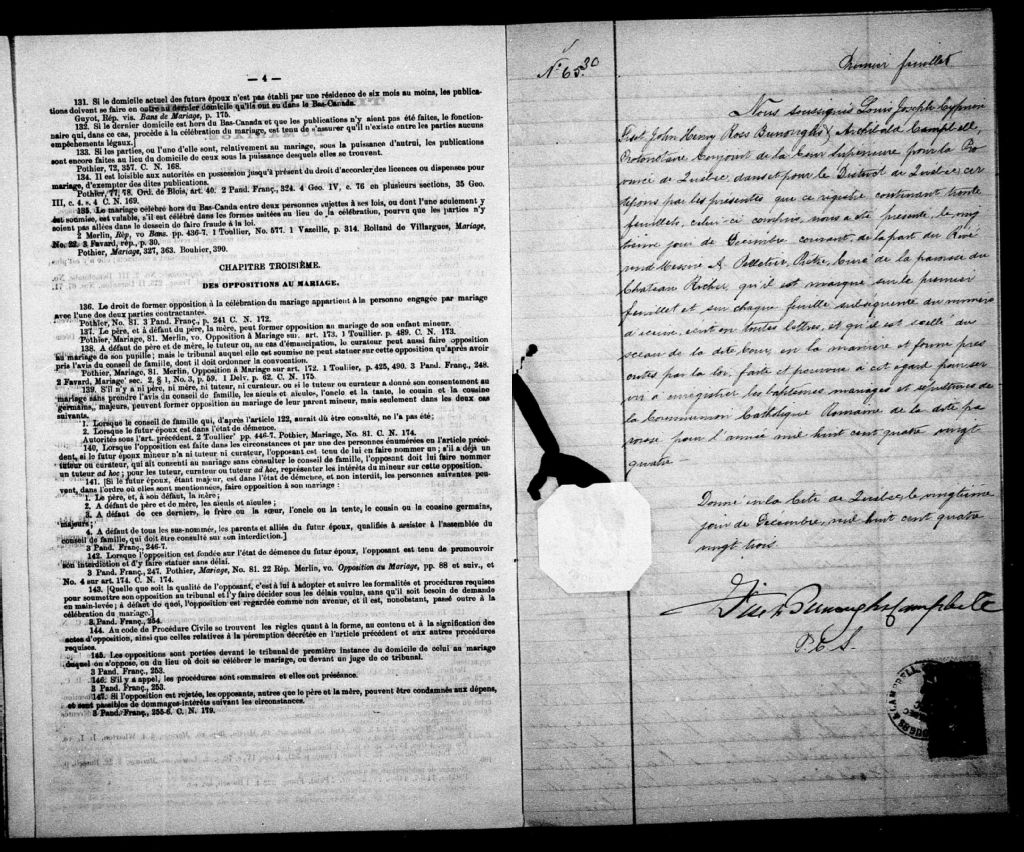 — 4 —
131. Si le domicile actuel des futurs époux n'est pas établi par une résidence de six mois au moins, les publica-
tions doivent se faire en outre au dernier domicile qu'ils ont eu dans le Bas-Canada.
Guyot, Rép. vis. Bans de Mariage, p. 175.
132. Si le dernier domicile est hors du Bas-Canada et que les publications n'y aient pas été faites, le fonction-
naire qui, dans ce cas, procède à la célébration du mariage, est tenu de s'assurer qu'il n'existe entre les parties aucun
empêchements légaux.]
133. Si les parties, ou l'une d'elles, sont, relativement au mariage, sous la puissance d'autrui, les publications
sont encore faites au lieu du domicile de ceux sous la puissance desquels elles se trouvent.
Pothier, 72, 357. C. N. 168.
134. Il est loisible aux autorités en possession jusqu'à présent du droit d'accorder des licences ou dispenses pour
mariage, d'exempter des dites publications.
Pothier, 77, 78. Ord. de Blois, art. 40. 2 Pand. Franç., 324. 4 Geo. IV, c. 76 en plusieurs sections, 35 Geo.
III, c. 4. s. 4 C. N. 169.
135. Le mariage célébré hors du Bas-Canda entre deux personnes sujettes à ses lois, ou dont l'une seulement y
est soumise, est valable, s'il est célébré dans les formes usitées au lieu de la célébration, pourvu que les parties n'y
soient pas allées dans le dessein de faire fraude à la loi.
2 Merlin, Rép, vo Bans. pp. 436-7. 1 Toullier, No. 577. 1 Vazeille, p. 314. Rolland de Villargues, Mariage,
No. 22. 3 Favard, rép., p. 30.
Pothier, Mariage, 327, 363. Bouhier, 390.
CHAPITRE TROISIÈME.
DES OPPOSITIONS AU MARIAGE.
136. Le droit de former opposition à la célébration du mariage appartient à la personne engagée par mariage
avec l'une des deux parties contractantes.
Pothier, No. 81. 3 Pand. Franç., p. 241 C. N. 172.
137. Le père, et à défaut du père, la mère, peut former opposition au mariage de son enfant mineur.
Pothier, Mariage, 81. Merlin, vo. Opposition à Mariage sur. art. 173. 1 Touillier. p. 489. C. N. 173.
138. A défaut de père et de mère, le tuteur ou, au cas d'émancipation, le curateur peut aussi faire opposition
au mariage de son pupille; mais le tribunal auquel elle est soumise ne peut statuer sur cette opposition qu'après avoir
pris l'avis du conseil de famille, dont il doit ordonner la convocation.
Pothier, Mariage, 81. Merlin, Opposition à Mariage sur art. 172. 1 Toulier, p. 425, 490. 3 Pand. Franç., 248.
2 Favard, Mariage' sec. 2, § 1, No. 3, p. 59. 1 Delv. p. 62. C. N. 175.
139. S'il n'y a ni père, ni mère, ni tuteur, ni curateur, ou si le tuteur ou curateur a donné son consentement au
mariage sans prendre l'avis du conseil de famille, les aieuls et aieules, l'oncle et la tante, le cousin et la cousine
germains, majeurs, peuvent former opposition au mariage de leur parent mineur, mais seulement dans les deux cas
suivants.
1. Lorsque le conseil de famille qui, d'après l'article 122, aurait dû être consulté, ne l'a pas été;
2. Lorsque le futur époux est dans l'état de démence.
Autorités sous l'art. précédent. 2 Toullier' pp. 446-7. Pothier, Mariage, No. 81. C. N. 174.
140, Lorsque l'opposition est faite dans les circonstances et par une des personnes énumérées en l'article précé-
dent, si le futur époux mineur n'a ni tuteur ni curateur, l'opposant est tenu de lui en faire nommer un; s'il a déjà un
tuteur ou curateur, qui ait consenti au mariage sans consulter le conseil de famille, l'opposant doit lui faire nommer
un tuteur ad hoc; pour les tuteur, curateur ou tuteur ad hoc, représenter les intérêts du mineur sur cette opposition.
141. [Si le futur époux, étant majeur, est dans l'état de démence, et non interdit, les personnes suivantes peu-
vent, dans l'ordre où elles sont mentionnées, faire opposition à son mariage:
1. Le père, et, à son défaut, la mère;
2. A défaut de père et de mère, les aieuls et aieules;
3. A défaut de ces derniers, le frère ou la sœur, l'oncle ou la tente, le cousin ou la cousine germains,
majeurs;
4. A défaut de tous les sus-nommés, les parents et alliés du futur époux, qualifiés à assister à l'assemblée du
conseil de famille, qui doit être consulté sur son interdiction.]
3 Pand. Franç., 246-7.
142. Lorsque l'opposition est fondée sur l'état de démence du futur époux, l'opposant est tenu de promouvoir
son interdiction et d'y faire statuer sans délai.
3 Pand. Franç., 247. Pothier, Mariage, No. 81. 22 Rép. Merlin, vo. Opposition au Mariage, pp. 88 et suiv., et
No. 4 sur art. 174. C. N. 174.
143. [Quelque que soit la qualité de l'opposant, c'est à lui à adopter et suivre les formalités et procédures requises
pour soumettre son opposition au tribunal et l'y faire décider sous les délais voulus, sans qu'il soit besoin de demande
en main-levée; à défaut de quoi, l'opposition est regardée comme non avenue, et il est, nonobstant, passé outre à la
célébration du mariage.]
3 Pand. Franç., 254.
144. Au code de Procédure Civile se trouvent les règles quant à la forme, au contenu et à la signification des
actes d'opposition, ainsi que celles relatives à la péremption décrétée en l'article précédent et aux autres procédures
requises.
145. Les oppositions sont portées devant le tribunal de première instance du domicile de celui au mariage
duquel on s'oppose, ou du lieu où doit se célébrer le mariage, ou devant un juge de ce tribunal.
3 Pand. Franç., 253.
146. S'il y a appel, les procédures sont sommaires et elles ont présence.
3 Pand. Franç., 253.
147. Si l'opposition est rejetée, les opposants, autres que le père et la mère, peuvent être condamnés aux dépens,
et sont passibles de dommages-intérêts suivant les circonstances.
3 Pand. Franç., 255-6. C. N. 179.
No. 6530
Premier feuillet
Nous soussignés Louis Joseph Cyprien
Fiset, John Henry Ross Burroughs & Archibald Campbell,
Protonotaire Conjoint de la Cour Supérieure pour la Pro
vince de Québec, dans et pour le District de Québec cer
tifions par les présentes que ce registre contenant trente
feuillets, celui-ci compris, nous a été présenté, le
jour de Décembre courant, de la part du Révé
rend Messire Pelletier, Ptre, Curé de la paroisse du
Chateau Richer, qu'il est marqué sur le premier
feuillet et sur chaque feuille subséquente du numéro
d'icelui, écrit en toutes lettres, et qu'il est scellé du
sceau de la dite Cour, en la manière et forme pres
crites par la loi, faite et pourvue à cet égard, pour ser
vir à enregistrer les baptêmes mariages et sépultures de
la Communion Catholique Romaine de la dite pa
roisse pour l'année mil huit cent quatre vingt
quatre
Donné en la Cité de Québec, le vingtième
jour de Décembre, mil huit cent quatre
vingt trois
Fiset Burroughs Campbell
P. C. S.